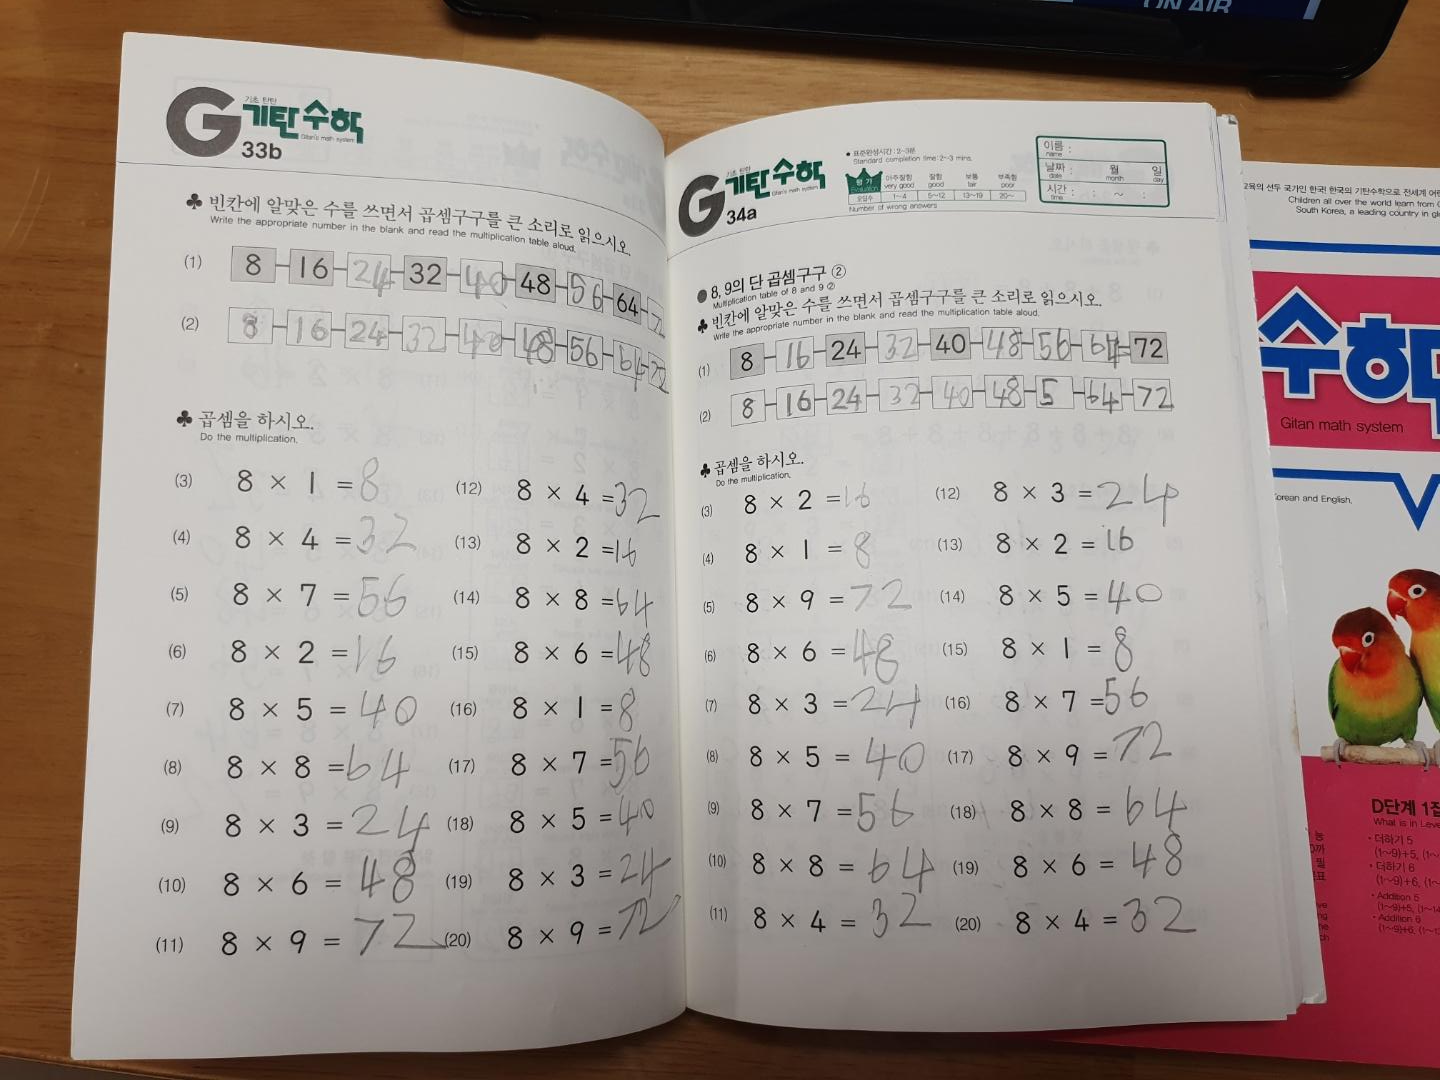 ON AIR
기초 탄탄
G 기탄수학
Gitan's math system
33b
♣ 빈칸에 알맞은 수를 쓰면서 곱셈구구를 큰 소리로 읽으시오.
Write the appropriate number in the blank and read the multiplication table aloud.
(1) 8 16 24 32 40 48 56 64 72
(2) 8 16 24 32 40 48 56 64 72
♣ 곱셈을 하시오.
Do the multiplication.
(3) 8 × 1 = 8
(4) 8 × 4 = 32
(5) 8 × 7 = 56
(6) 8 × 2 = 16
(7) 8 × 5 = 40
(8) 8 × 8 = 64
(9) 8 × 3 = 24
(10) 8 × 6 = 48
(11) 8 × 9 = 72
(12) 8 × 4 = 32
(13) 8 × 2 = 16
(14) 8 × 8 = 64
(15) 8 × 6 = 48
(16) 8 × 1 = 8
(17) 8 × 7 = 56
(18) 8 × 5 = 40
(19) 8 × 3 = 24
(20) 8 × 9 = 72
기초 탄탄
G 기탄수학
Gitan's math system
34a
• 표준완성시간 : 2~3분
Standard completion time: 2~3 mins.
평가 아주잘함 잘함 보통 부족함
Evaluation very good good fair poor
오답수 1~4 5~12 13~19 20~
Number of wrong answers
이름 :
name
날짜 : 월 일
date month day
시간 : : ~ :
time
● 8, 9의 단 곱셈구구 ②
Multiplication table of 8 and 9 ②
♣ 빈칸에 알맞은 수를 쓰면서 곱셈구구를 큰 소리로 읽으시오.
Write the appropriate number in the blank and read the multiplication table aloud.
(1) 8 16 24 32 40 48 56 64 72
(2) 8 16 24 32 40 48 5 64 72
♣ 곱셈을 하시오.
Do the multiplication.
(3) 8 × 2 = 16
(4) 8 × 1 = 8
(5) 8 × 9 = 72
(6) 8 × 6 = 48
(7) 8 × 3 = 24
(8) 8 × 5 = 40
(9) 8 × 7 = 56
(10) 8 × 8 = 64
(11) 8 × 4 = 32
(12) 8 × 3 = 24
(13) 8 × 2 = 16
(14) 8 × 5 = 40
(15) 8 × 1 = 8
(16) 8 × 7 = 56
(17) 8 × 9 = 72
(18) 8 × 8 = 64
(19) 8 × 6 = 48
(20) 8 × 4 = 32
교육의 선두 국가인 한국! 한국의 기탄수학으로 전세계 어린
Children all over the world learn from
South Korea, a leading country in
수학
Gitan math system
Korean and English.
D단계 1집
What is in Level
• 더하기 5
(1~9)+5,
• 더하기 6
(1~9)+6,
• Addition 5
(1~9)+5, (1~14
• Addition 6
(1~9)+6,